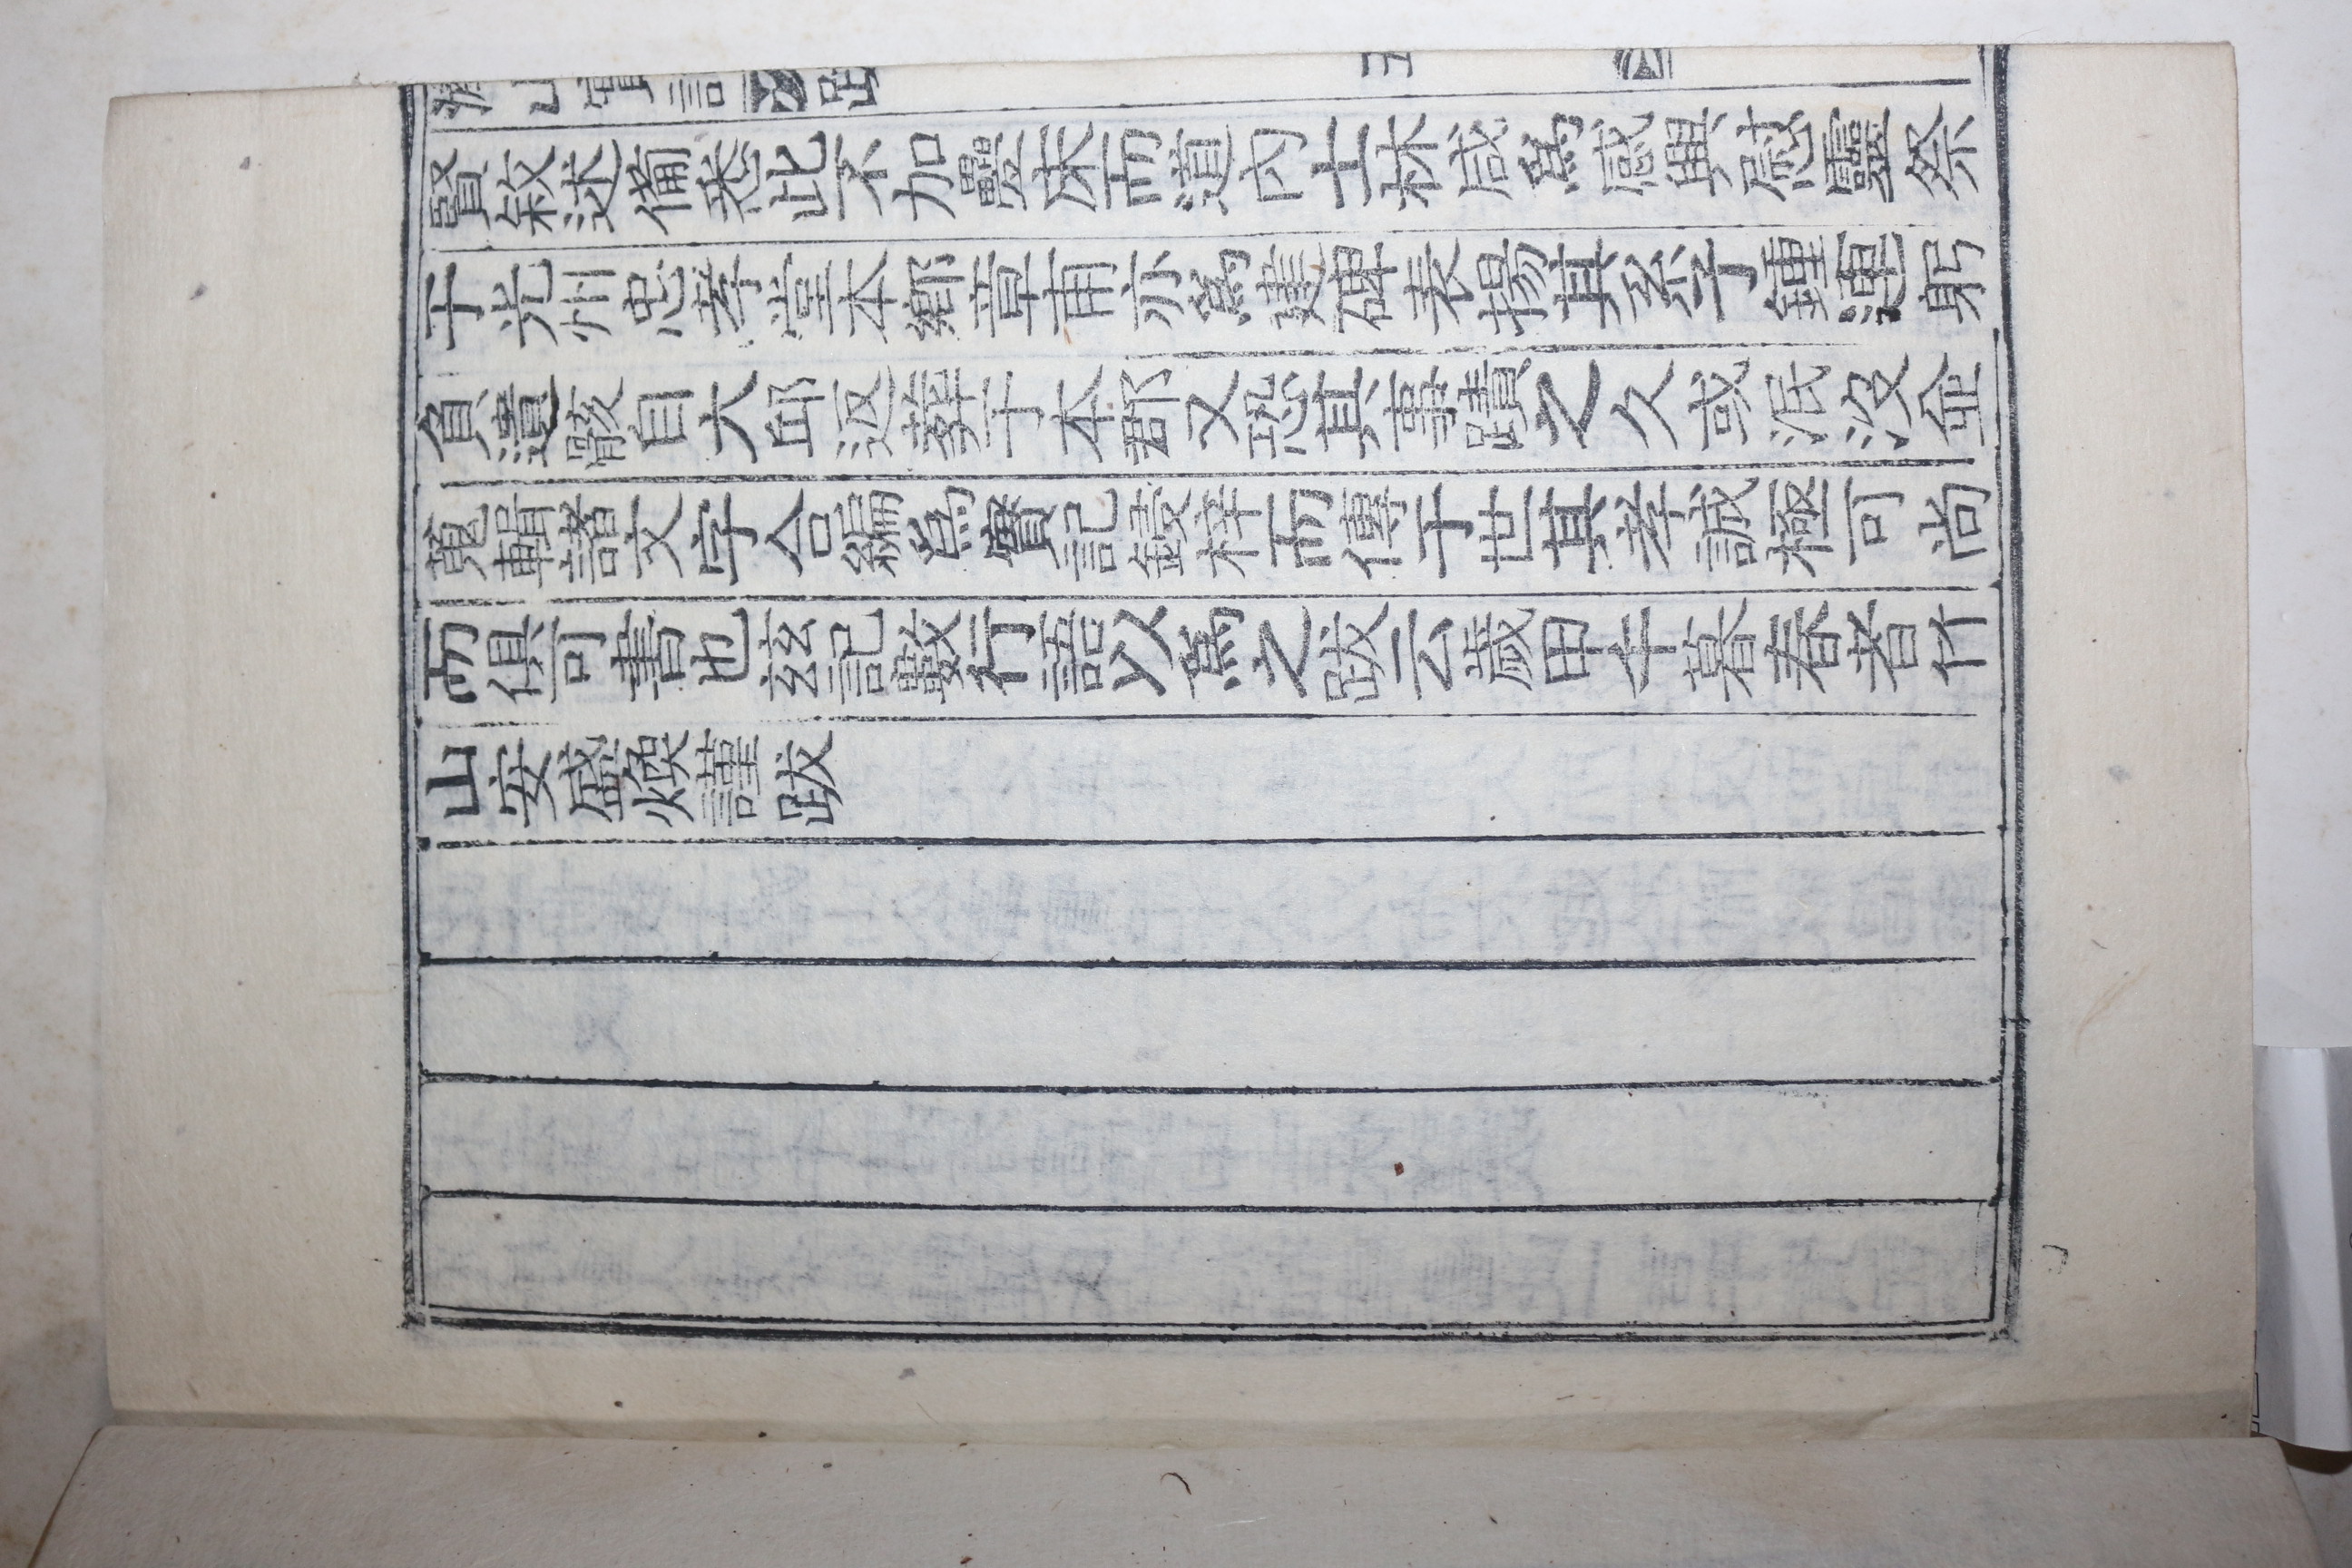 山實記 跋 五
賢敘述備悉此不加疊床而道內士林咸爲感興慰靈祭
于光州忠孝堂本鄕章甫亦爲建碑表揚其系子鍾連躬
負遺骸自大邱返葬于本郡又恐其事蹟之久或泯沒並
蒐輯諸文字合編爲實記鋟梓而傳于世其孝誠極可尙
而俱可書也玆記數行語以爲之跋云歲甲午暮春者竹
山安盛煥謹跋